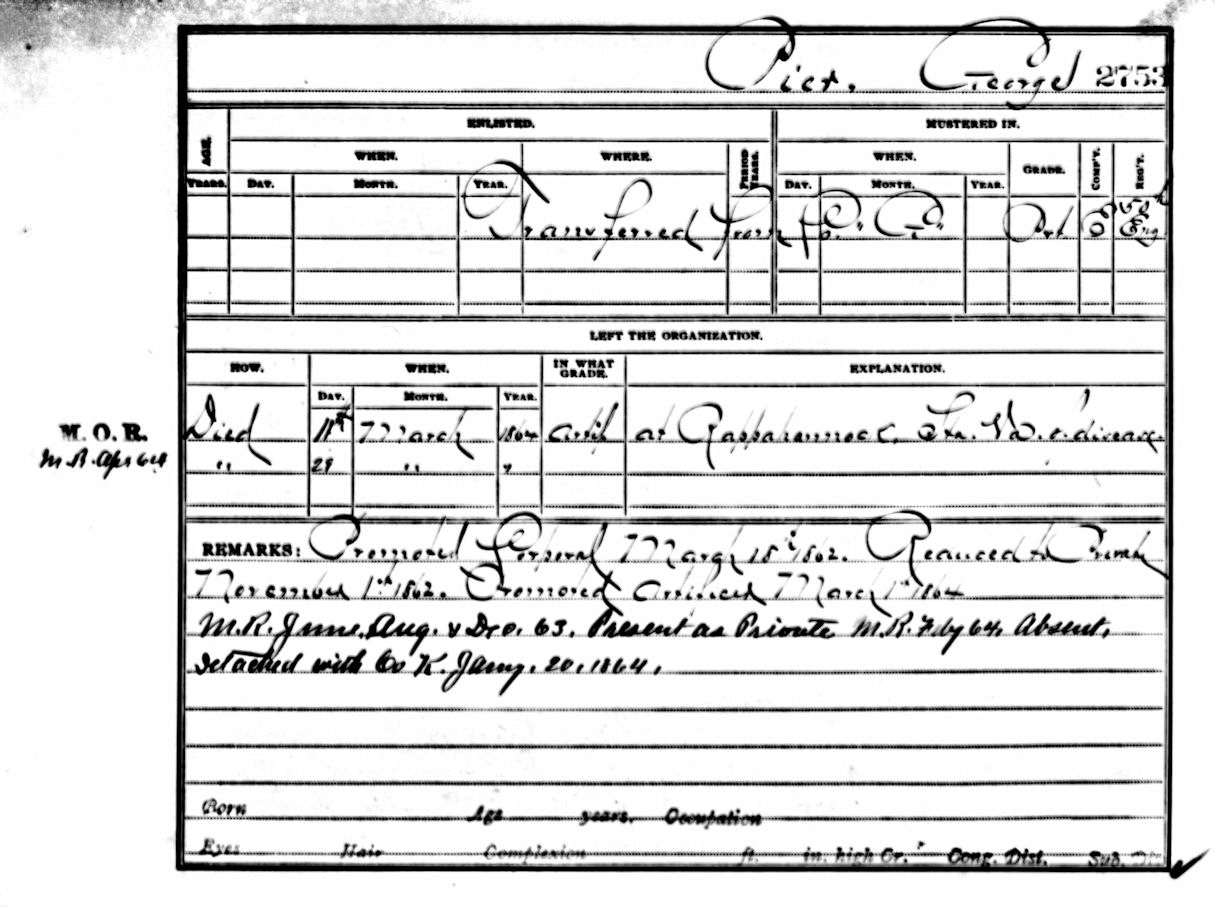 Pier, George 2753
ENLISTED. MUSTERED IN.
AGE. WHEN. WHERE. PERIOD YEARS. WHEN. GRADE. COMP'Y. REG'T.
YEARS. DAY. MONTH. YEAR. DAY. MONTH. YEAR.
Transferred from Co. "G" Pvt E 50th Eng
LEFT THE ORGANIZATION.
HOW. WHEN. IN WHAT GRADE. EXPLANATION.
DAY. MONTH. YEAR.
Died March 1864 artif at Rappahannock, Sta. Va. disease.
M. O. R.
M.R. Apr 64 " 29 " "
REMARKS: Promoted Corporal March 18th 1862. Reduced to Private
November 1st 1862. Promoted Artificer March 1st 1864
M.R. June, Aug. & Dec. 63, Present as Private M.R. Feby 64, Absent,
detached with Co K. Jany. 20, 1864.
Born Age years. Occupation
Eyes Hair Complexion ft. in. high Cr. Cong. Dist. Sub. Dist.